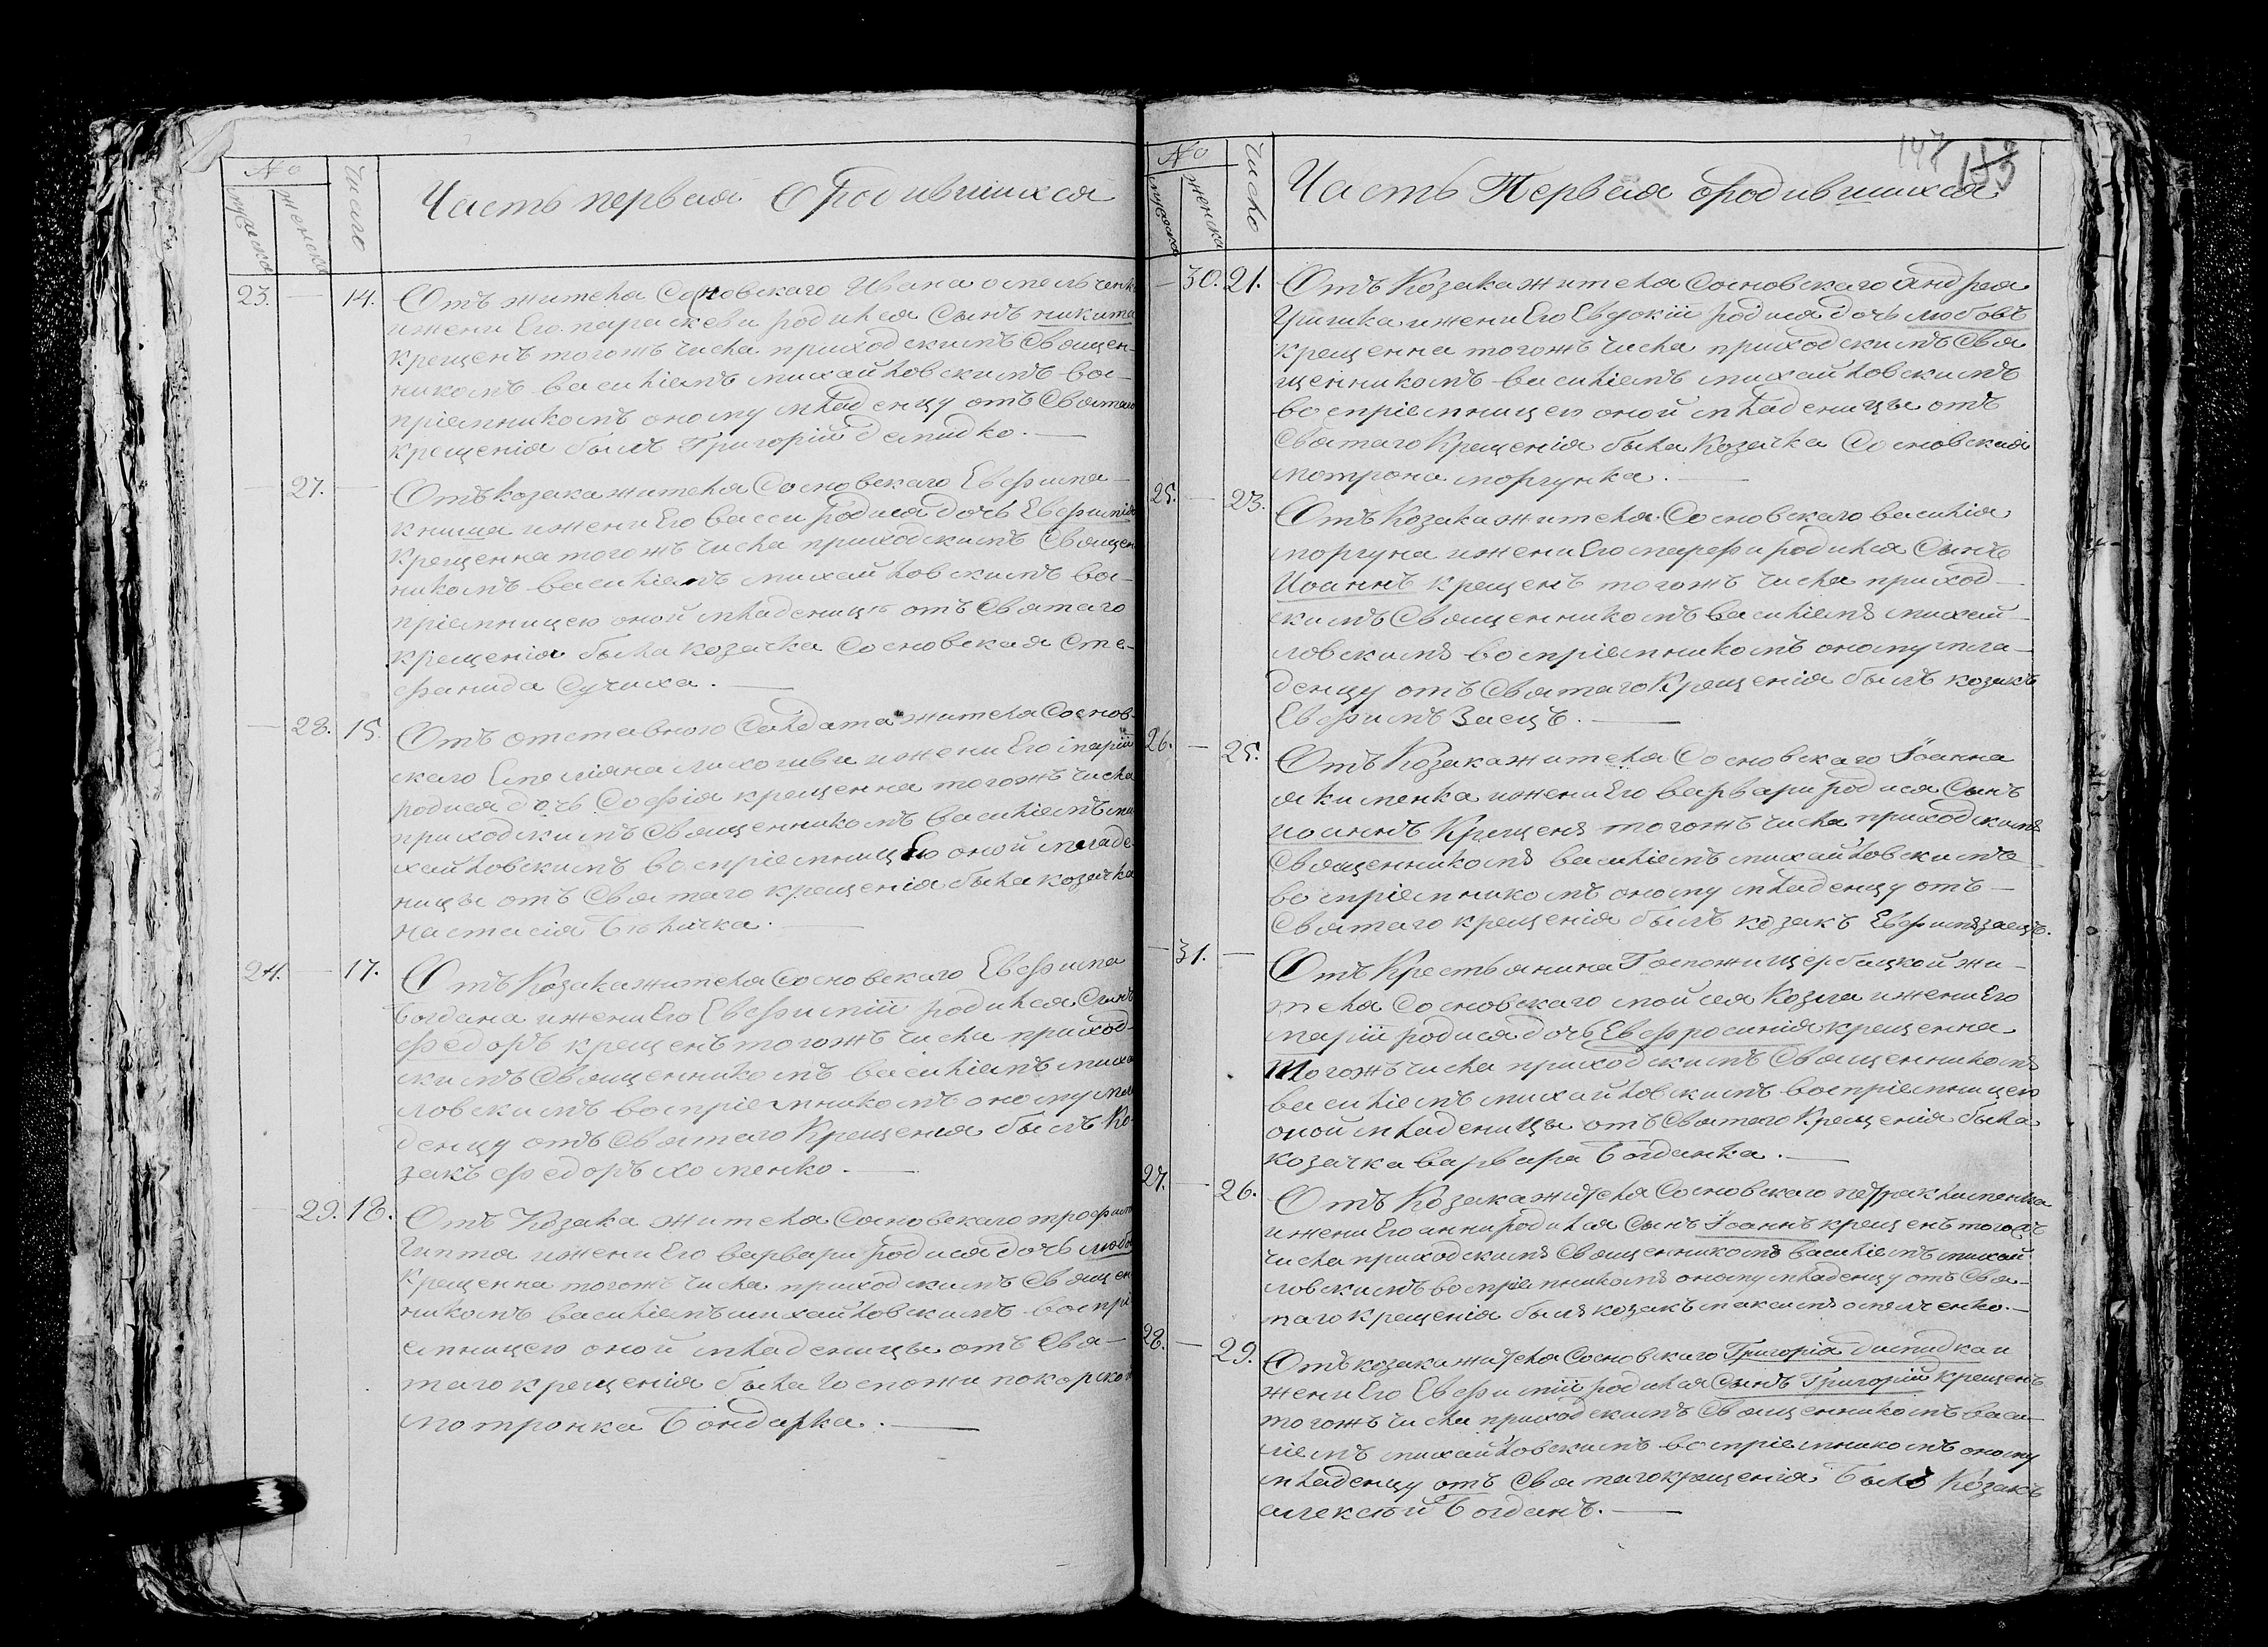 №
мужеска
женска
число
Часть первая о родившихся
23. — 14. Отъ жителя Сосновскаго Ивана
и жени Его параскеви родился Сынъ никита
крещенъ тогожъ числа приходскимъ Священ-
никомъ василіемъ михайловскимъ вос-
пріемникомъ оному младенцу отъ Святаго
крещенія былъ Григорій демидко. —
— 27. — Отъ козака жителя Сосновскаго Евфима
книша и жени Его васси родися дочь Евфимія
крещенна тогожъ числа приходскимъ Священ
никомъ василіемъ михайловскимъ вос-
пріемницею оной младеницы отъ Святаго
крещенія была козачка Сосновская Сте-
фанида Сучиха. —
— 28. 15. Отъ отставного Салдата жителя Соснов-
скаго Емеліяна и жени Его маріи
родися дочь Софія крещенна тогожъ числа
приходскимъ Священникомъ василіемъ ми
хайловскимъ воспріемницею оной младе
ницы отъ Святаго крещенія была козачка
настасія Бѣличка. —
24. — 17. Отъ Козака жителя Сосновскаго Евфима
Богдана и жени Его Евфиміи родился Сынъ
федоръ крещенъ тогожъ числа приход-
скимъ Священникомъ василіемъ михай
ловскимъ воспріемникомъ оному мла
денцу отъ Святаго Крещения былъ Ко-
закъ федоръ хоменко. —
— 29. 18. Отъ Козака жителя Сосновскаго трофима
и жени Его варвари родися дочь любов
Крещенна тогожъ числа приходскимъ Священ
никомъ василіемъ михайловскимъ воспрі
емницею оной младеницы отъ Свя-
таго крещенія была Госпожи покорской
мотронка Бондарка. —
147
№
мужеска
женска
число
Часть Первая о родившихся
— 30. 21. Отъ Козака жителя Сосновскаго Андрея
Гришка и жени Его Евдокіи родися дочь любовъ
крещенна тогожъ числа приходскимъ Свя
щенникомъ василіемъ михайловскимъ
воспріемницею оной младеницы отъ
Святаго Крещенія была Козачка Сосновская
мотрона моргунка. —
25. — 23. Отъ Козака жителя Сосновскаго василія
моргуна и жени Его марфи родился Сынъ
Иоаннъ крещенъ тогожъ числа приход-
скимъ Священникомъ василіемъ михай-
ловскимъ воспріемникомъ оному мла-
денцу отъ Святаго Крещенія былъ козакъ
Евфимъ Заецъ. —
26. — 25. Отъ Козака жителя Сосновскаго Іоанна
якименка и жени Его варвари родися Сынъ
иоаннъ Крещенъ тогожъ числа приходскимъ
Священникомъ василіемъ михайловскимъ
воспріемникомъ оному младенцу отъ —
Святаго крещенія былъ козакъ Евфимъ заецъ.
— 31. — Отъ Крестьянина Госпожи щербацкой жи-
теля Сосновскаго мойсея Козла и жени Его
маріи родися дочь Евфросинія крещенна
Тогожъ числа приходскимъ Священникомъ
василіемъ михайловскимъ воспріемницею
оной младеницы отъ Святаго Крещенія была
козачка варвара Богданка. —
27. — 26. Отъ Козака жителя Сосновскаго петра клименка
и жени Его анни родился Сынъ Іоаннъ крещенъ тогожъ
числа приходскимъ Священникомъ василіемъ михай
ловскимъ воспріемникомъ оному младенцу отъ Свя-
таго крещенія былъ козакъ максимъ —
28. — 29. Отъ козака жителя Сосновскаго Григорія димидка и
жени Его Евфиміи родился Сынъ Григорій крещенъ
тогожъ числа приходскимъ Священникомъ васи-
ліемъ михайловскимъ воспріемникомъ оному
младенцу отъ Святаго крещенія Былъ Козакъ
алексѣй Богданъ. —